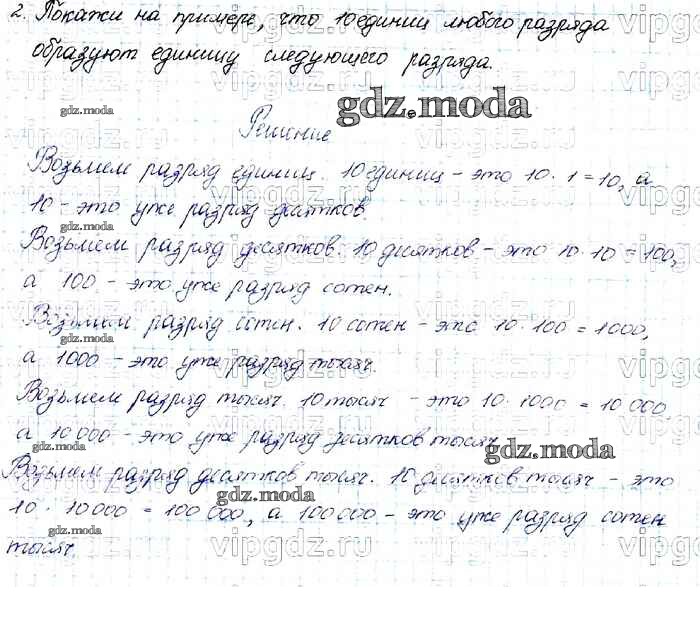 2. Покажи на примере, что 10 единиц любого разряда
образуют единицу следующего разряда.
gdz.moda
gdz.moda
Решение
Возьмем разряд единиц. 10 единиц - это 10 · 1 = 10, а
10 - это уже разряд десятков.
gdz.moda
Возьмем разряд десятков. 10 десятков - это 10 · 10 = 100,
а 100 - это уже разряд сотен.
Возьмем разряд сотен. 10 сотен - это 10 · 100 = 1000,
gdz.moda
а 1000 - это уже разряд тысяч.
Возьмем разряд тысяч. 10 тысяч - это 10 · 1000 = 10 000
а 10 000 - это уже разряд десятков тысяч.
gdz.moda
gdz.moda
Возьмем разряд десятков тысяч. 10 десятков тысяч - это
gdz.moda
10 · 10 000 = 100 000, а 100 000 - это уже разряд сотен
тысяч.
vipgdz.ru